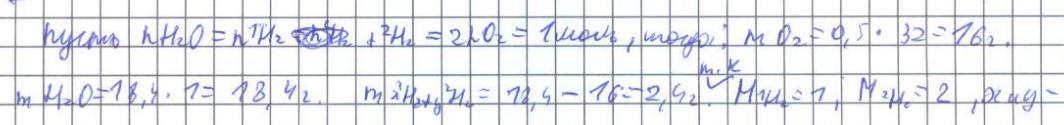 Пусть nH₂O = n¹H₂ + ²H₂ = 2nO₂ = 1 моль, тогда: m O₂ = 0,5 · 32 = 16 г.
m H₂O = 18,4 · 1 = 18,4 г. m ¹H₂+²H₂ = 18,4 – 16 = 2,4 г. т.к M¹H₂ = 1, M²H₂ = 2, x и y =